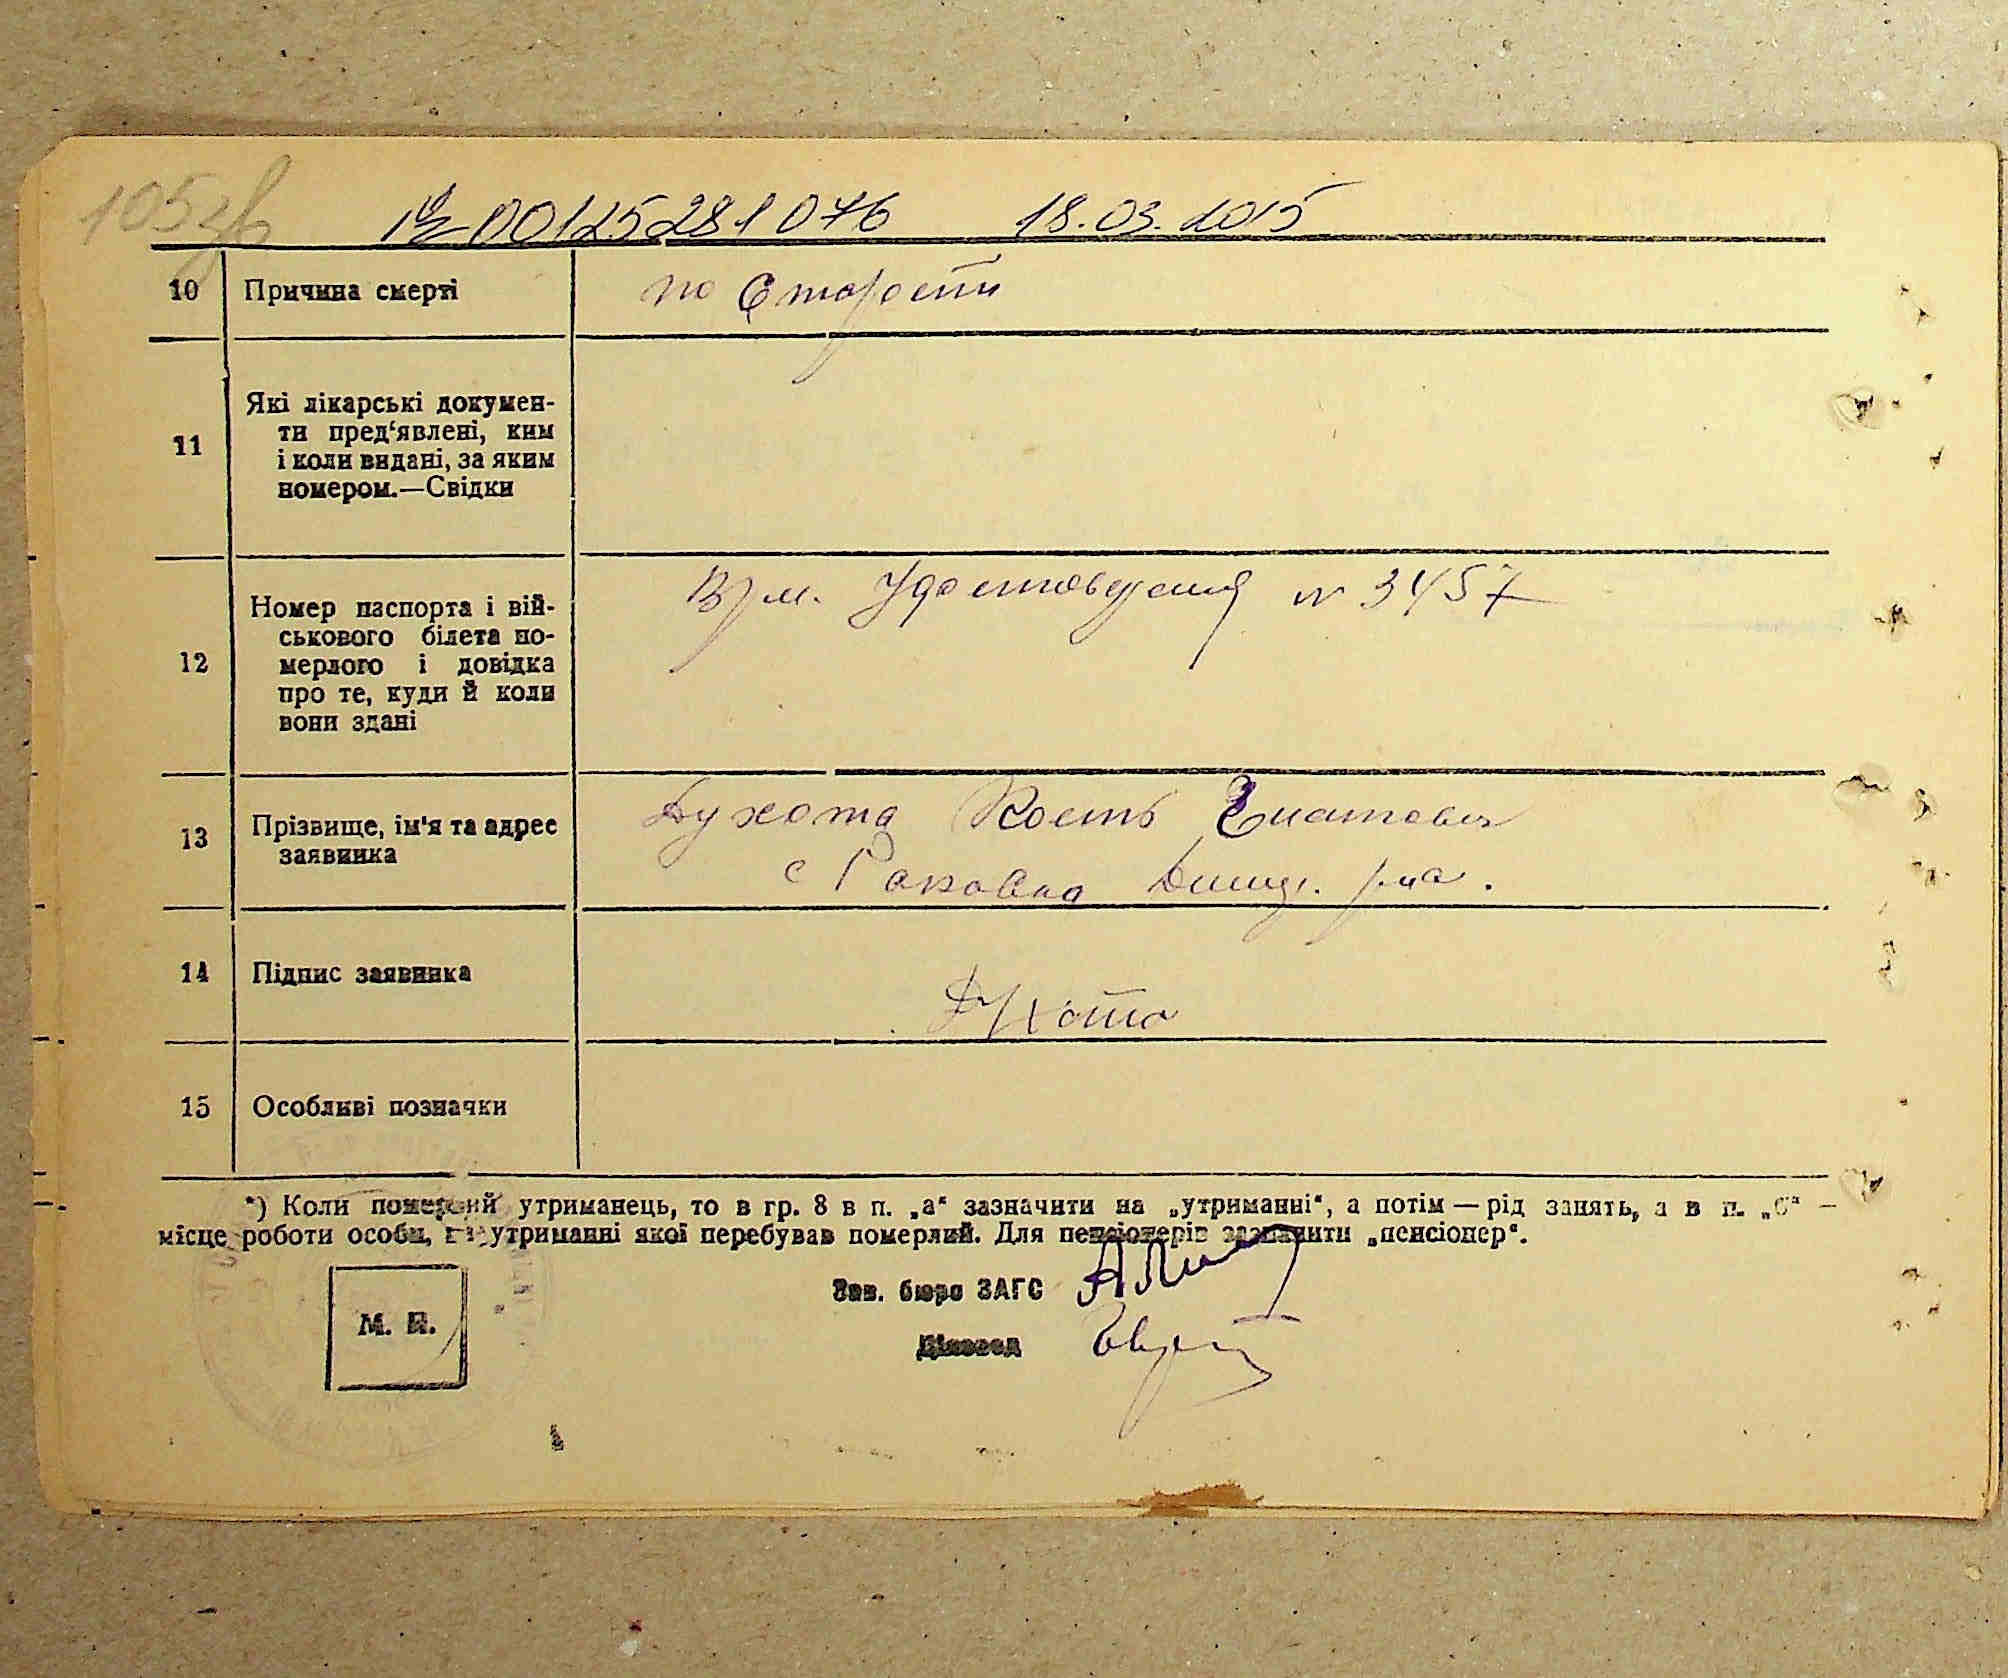 105зв
№ 00125281076 18.03.2015
10 Причина смерті по Старости
11 Які лікарські докумен-
ти пред‘явлені, ким
і коли видані, за яким
номером.—Свідки
12 Номер паспорта і вій-
ськового білета по-
мерлого і довідка
про те, куди й коли
вони здані
Врм. Удостоверения № 3457
13 Прізвище, ім'я та адрес
заявника
Духота Кость
с Раковка р-на.
14 Підпис заявника Духота
15 Особливі позначки
*) Коли померлий утриманець, то в гр. 8 в п. „а“ зазначити на „утриманні“, а потім — рід занять, а в п. „б“ —
місце роботи особи, на утриманні якої перебував померлий. Для пенсіонерів зазначити „пенсіонер“.
М. П.
Зав. бюро ЗАГС
Діловод